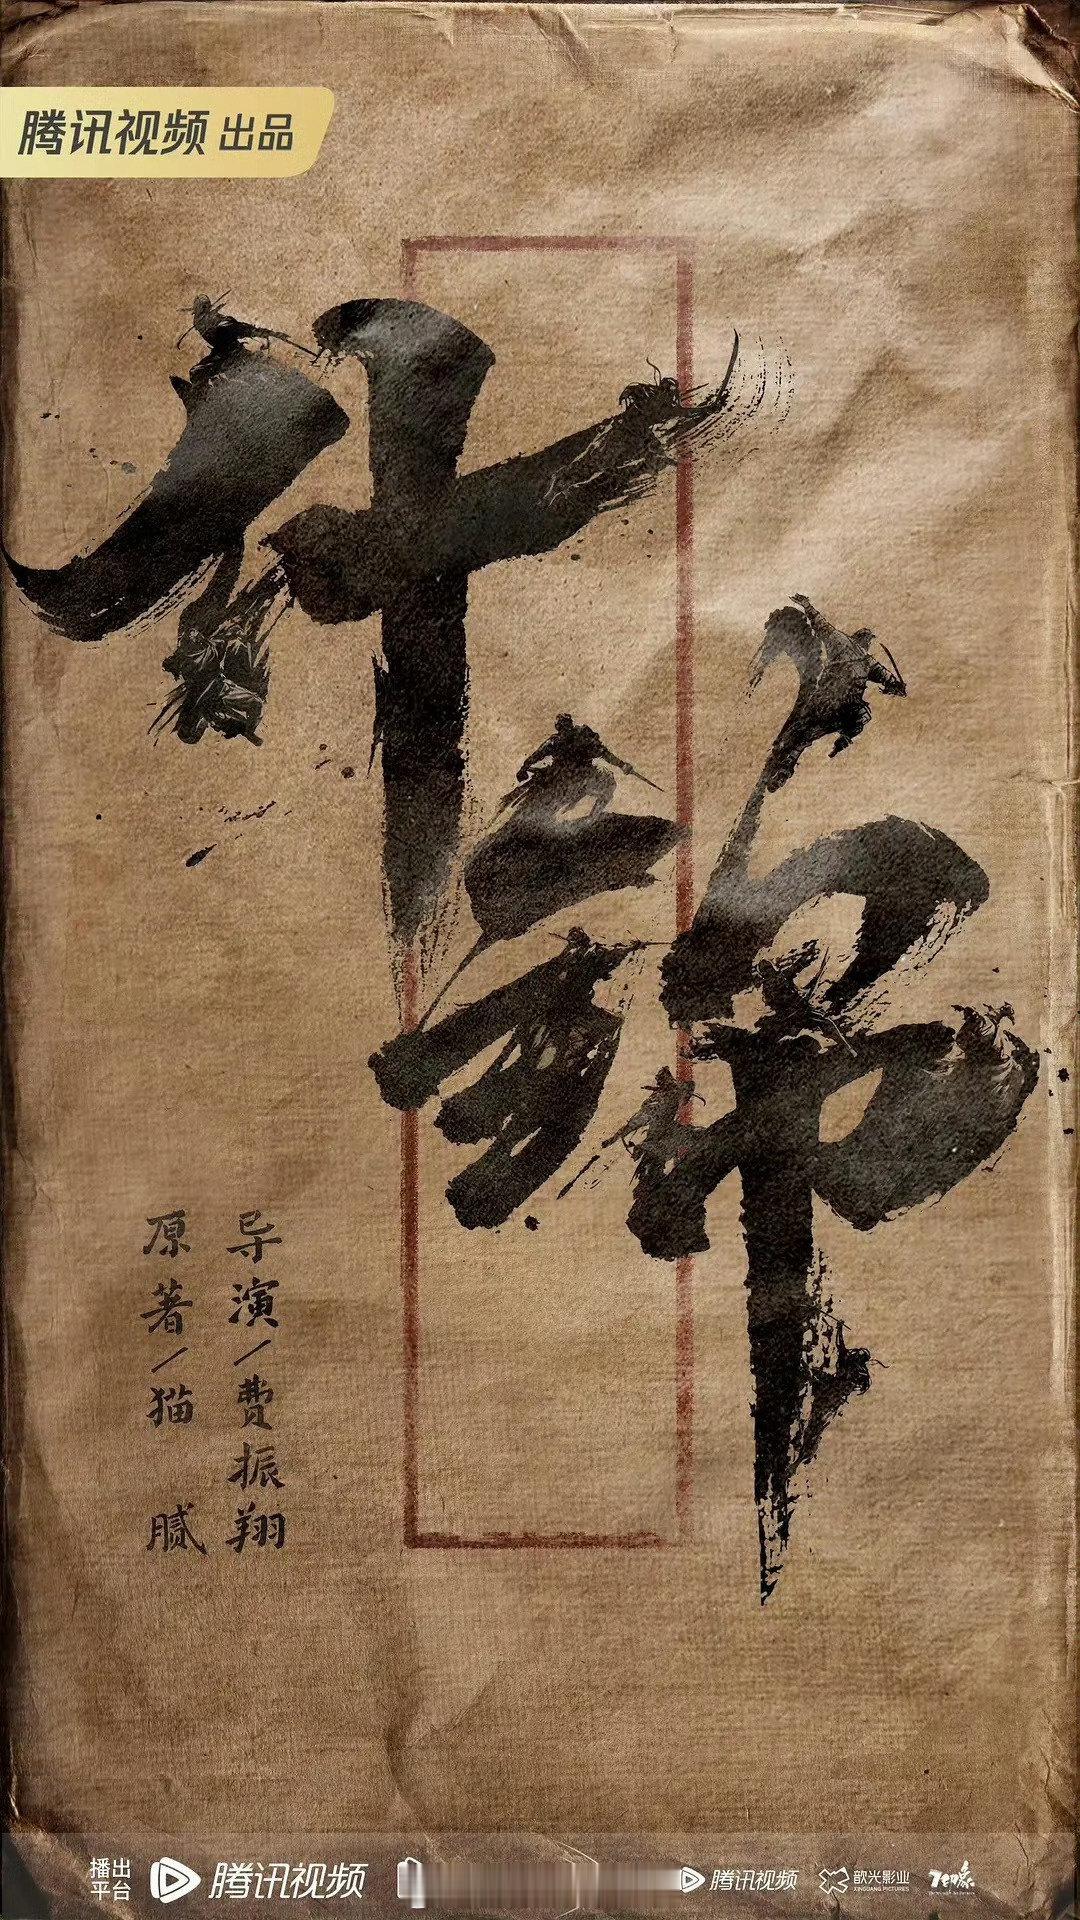 腾讯视频 出品
什锦
导演/费振翔
原著/猫腻
播出平台
腾讯视频
腾讯视频
歆光影业
XINGUANG PICTURES